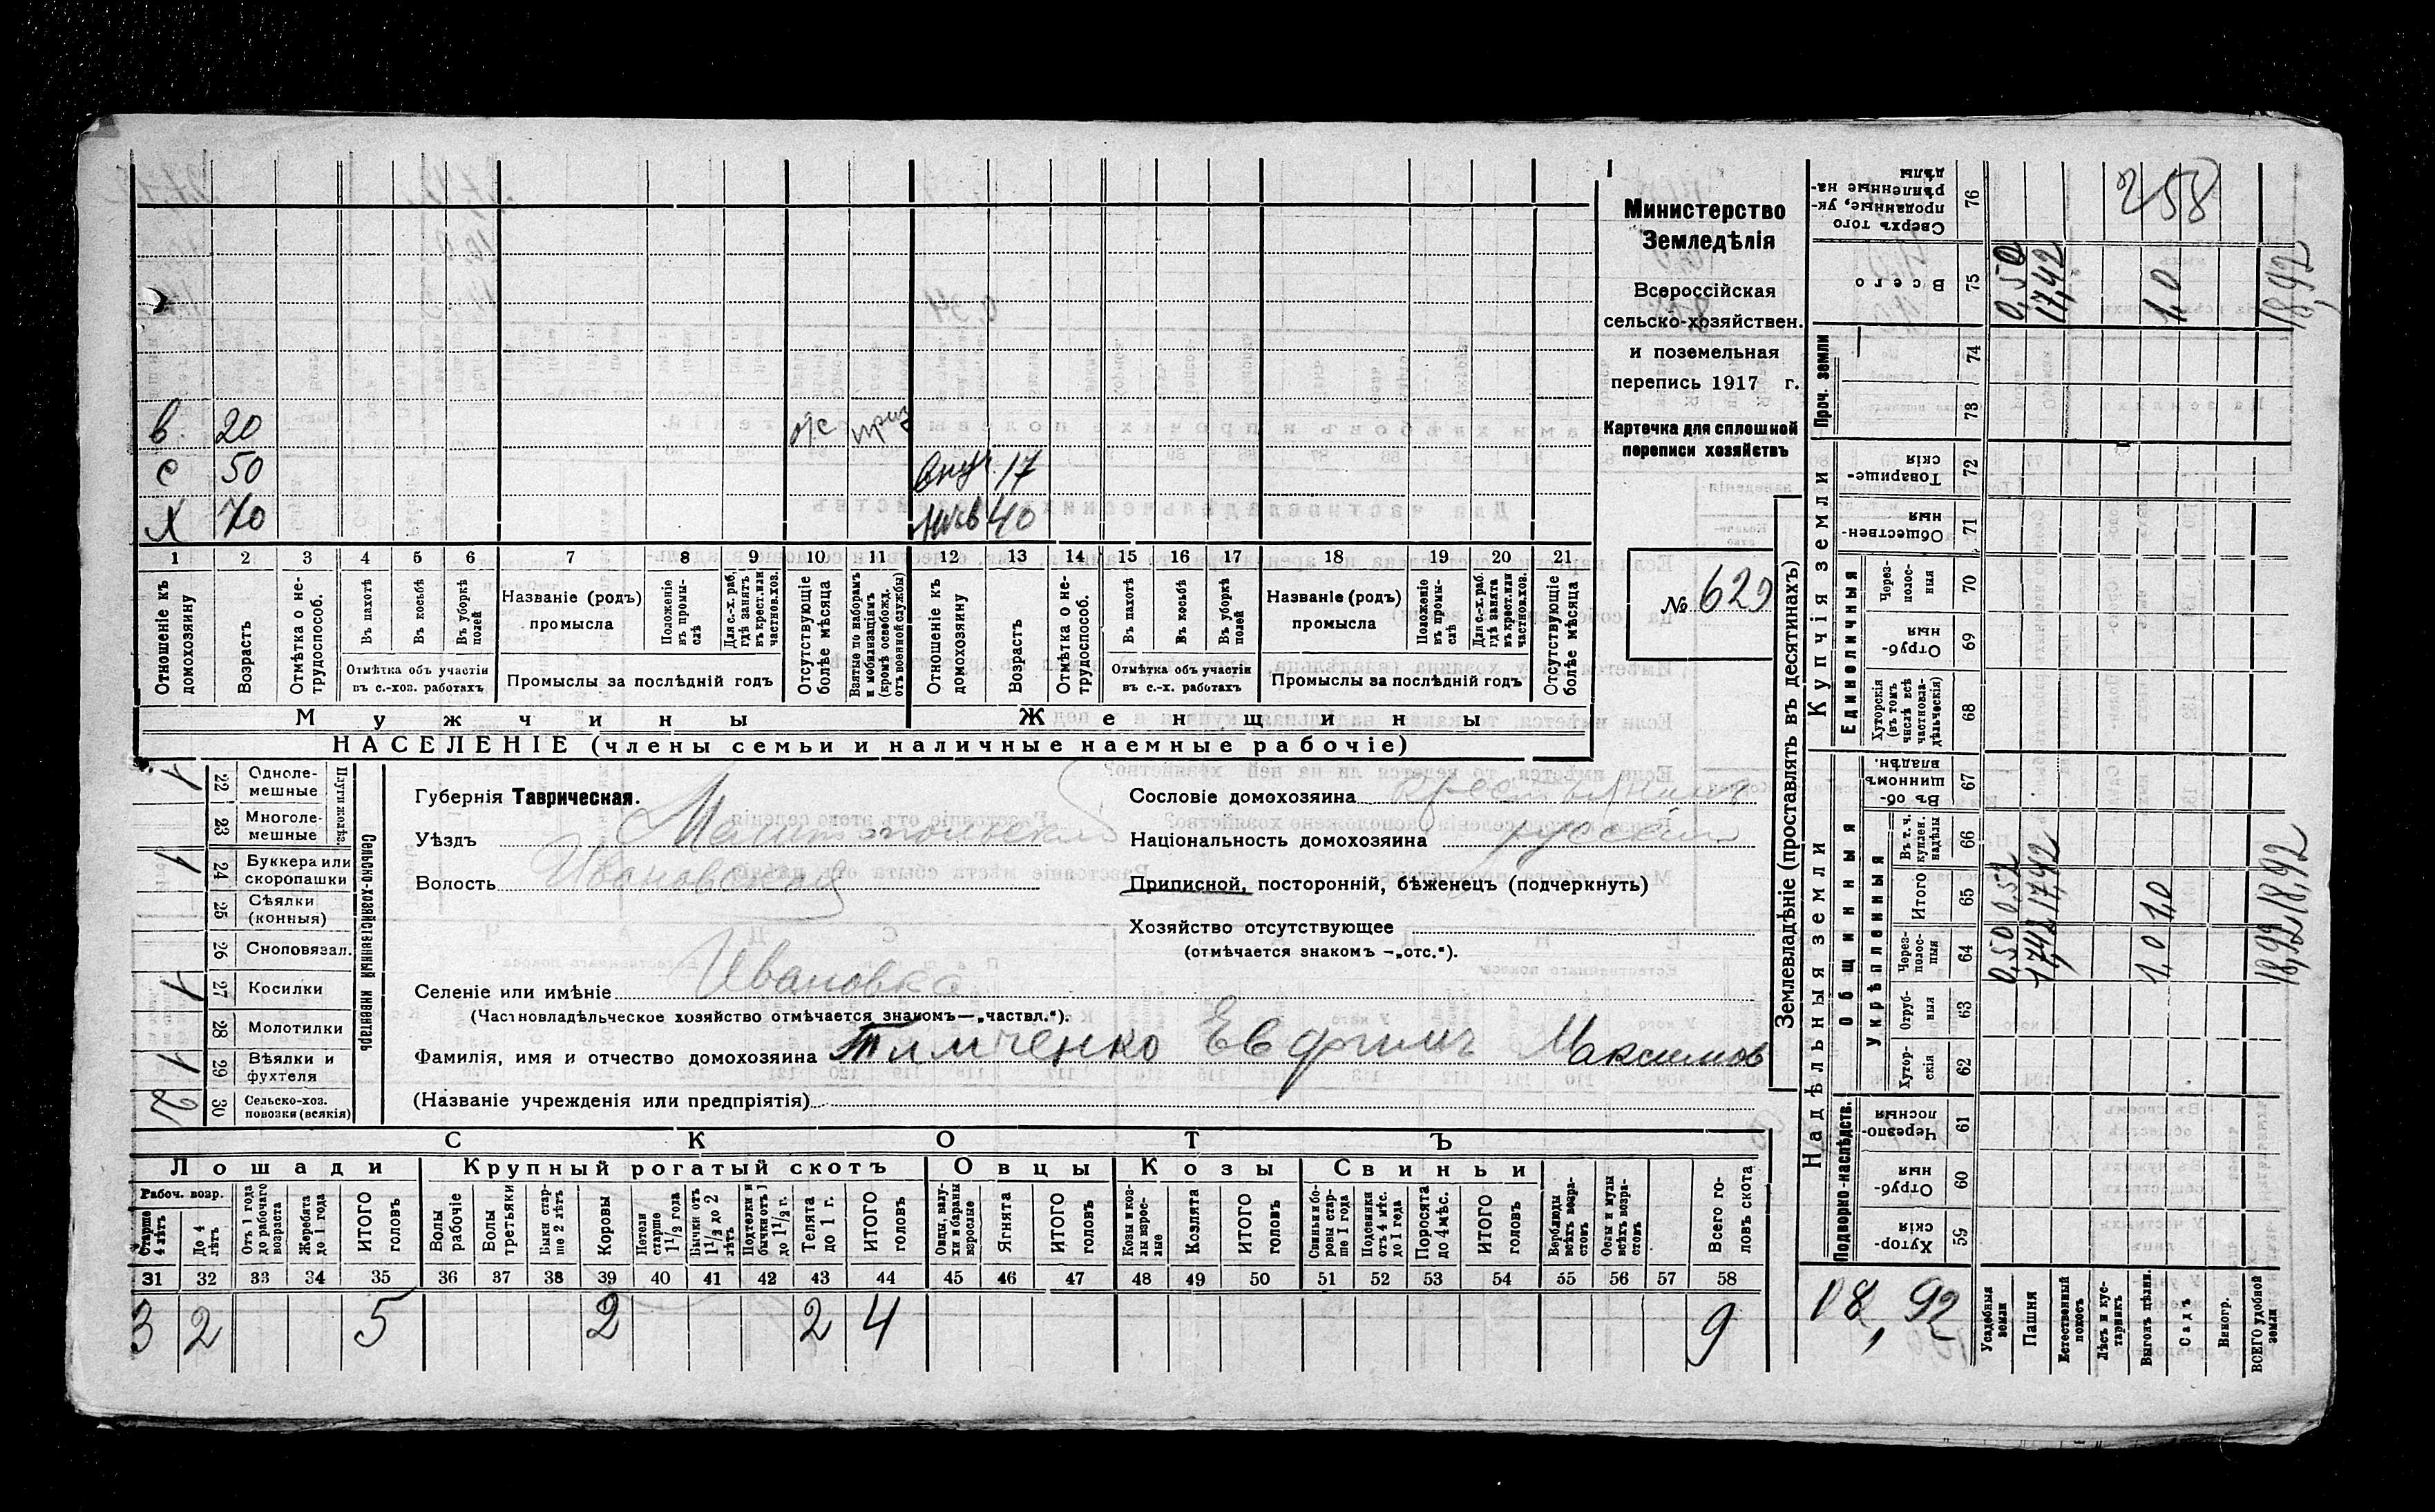 Министерство
Земледѣлія
Всероссійская
сельско-хозяйствен.
и поземельная
перепись 1917 г.
Карточка для сплошной
переписи хозяйствъ
№ 629
в. 20 о/с приз
с 50 внуч. 17
х 70 нѣв 40
1 2 3 4 5 6 7 8 9 10 11 12 13 14 15 16 17 18 19 20 21
Отношеніе къ домохозяину
Возрастъ
Отмѣтка о нетрудоспособ.
Въ пахотѣ
Въ косьбѣ
Въ уборкѣ полей
Отмѣтка объ участіи
въ с.-хоз. работахъ
Названіе (родъ)
промысла
Положеніе въ промыслѣ
Для с.-х. раб. гдѣ занятъ въ крест. или частнов. хоз.
Промыслы за послѣдній годъ
Отсутствующіе болѣе мѣсяца
Взятые по наборамъ и мобилизаціямъ (кромѣ освобожд. отъ военной службы)
Отношеніе къ домохозяину
Возрастъ
Отмѣтка о нетрудоспособ.
Въ пахотѣ
Въ косьбѣ
Въ уборкѣ полей
Отмѣтка объ участіи
въ с.-х. работахъ
Названіе (родъ)
промысла
Положеніе въ промыслѣ
Для с.-х. раб. гдѣ занята въ крест. или частнов. хоз.
Промыслы за послѣдній годъ
Отсутствующіе болѣе мѣсяца
Мужчины Женщины
НАСЕЛЕНІЕ (члены семьи и наличные наемные рабочіе)
Сельско-хозяйственный инвентарь
1 22 Однолемешные
23 Многолемешные
1 24 Буккера или скоропашки
25 Сѣялки (конныя)
26 Сноповязал.
1 27 Косилки
28 Молотилки
1 29 Вѣялки и фухтеля
2 30 Сельско-хоз. повозки (всякія)
Губернія Таврическая.
Уѣздъ Мелитопольскій
Волость Ивановская
Селеніе или имѣніе Ивановка
(Частновладѣльческое хозяйство отмѣчается знакомъ—„частвл.“).
Фамилія, имя и отчество домохозяина Тимченко Евфимъ Максимов
(Названіе учрежденія или предпріятія)
Сословіе домохозяина крестьянинъ
Національность домохозяина русскій
Приписной, посторонній, бѣженецъ (подчеркнуть)
Хозяйство отсутствующее
(отмѣчается знакомъ —„отс.“).
СКОТЪ
Лошади Крупный рогатый скотъ Овцы Козы Свиньи
Рабоч. возр.
Старше 4 лѣтъ
До 4 лѣтъ
Отъ 1 года до рабочаго возраста
Жеребята до 1 года
ИТОГО головъ
Волы рабочіе
Волы третьяки
Быки старше 2 лѣтъ
Коровы
Нетели старше 1 1/2 года
Бычки отъ 1 1/2 до 2 лѣтъ
Подтелки и бычки отъ 1 до 1 1/2 г.
Телята до 1 г.
ИТОГО головъ
Овцы, валухи и бараны взрослые
Ягнята
ИТОГО головъ
Козы и козлы взрослые
Козлята
ИТОГО головъ
Свиньи и боровы старше 1 года
Подсвинки отъ 4 мѣс. до 1 года
Поросята до 4 мѣс.
ИТОГО головъ
Верблюды всѣхъ возрастовъ
Ослы и мулы всѣхъ возрастовъ
Всего головъ скота
31 32 33 34 35 36 37 38 39 40 41 42 43 44 45 46 47 48 49 50 51 52 53 54 55 56 57 58
3 2 5 2 2 4 9
Землевладѣніе (проставлять въ десятинахъ)
Надѣльныя земли Купчія земли Проч. земли
Подворно-наслѣдств.
Общинныя
Укрѣпленныя
Единоличныя
Хуторскія 59
Отрубныя 60
Черезполосныя 61
Хуторскія 62
Отрубныя 63
Черезполосныя 64
Итого 65
Въ т. ч. куплен. надѣлы 66
Въ общинномъ владѣн. 67
Хуторскія (въ томъ числѣ всѣ частновладѣльческія) 68
Отрубныя 69
Черезполосныя 70
Общественныя 71
Товарищескія 72
73
74
Всего 75
Сверхъ того проданные, укрѣпленные надѣлы 76
258
0,50 17,42 1,0 18,92
0,50 17,42 1,0 18,92
0,50 17,42 1,0 18,92
18,92
Усадебныя земли
Пашня
Естественный покосъ
Лѣсъ и кустарникъ
Выгонъ цѣлин.
Садъ
Виногр.
ВСЕГО удобной земли